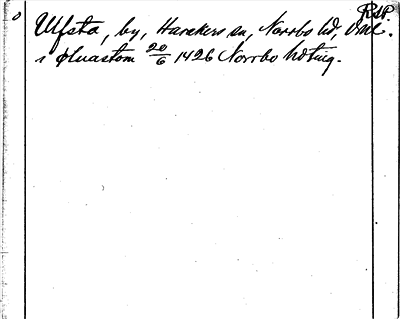 Rsp.
Ulfsta, by, Harakers sn, Norrbo hd, Vml.
i øluastom 20/6 1426 Norrbo hdting.